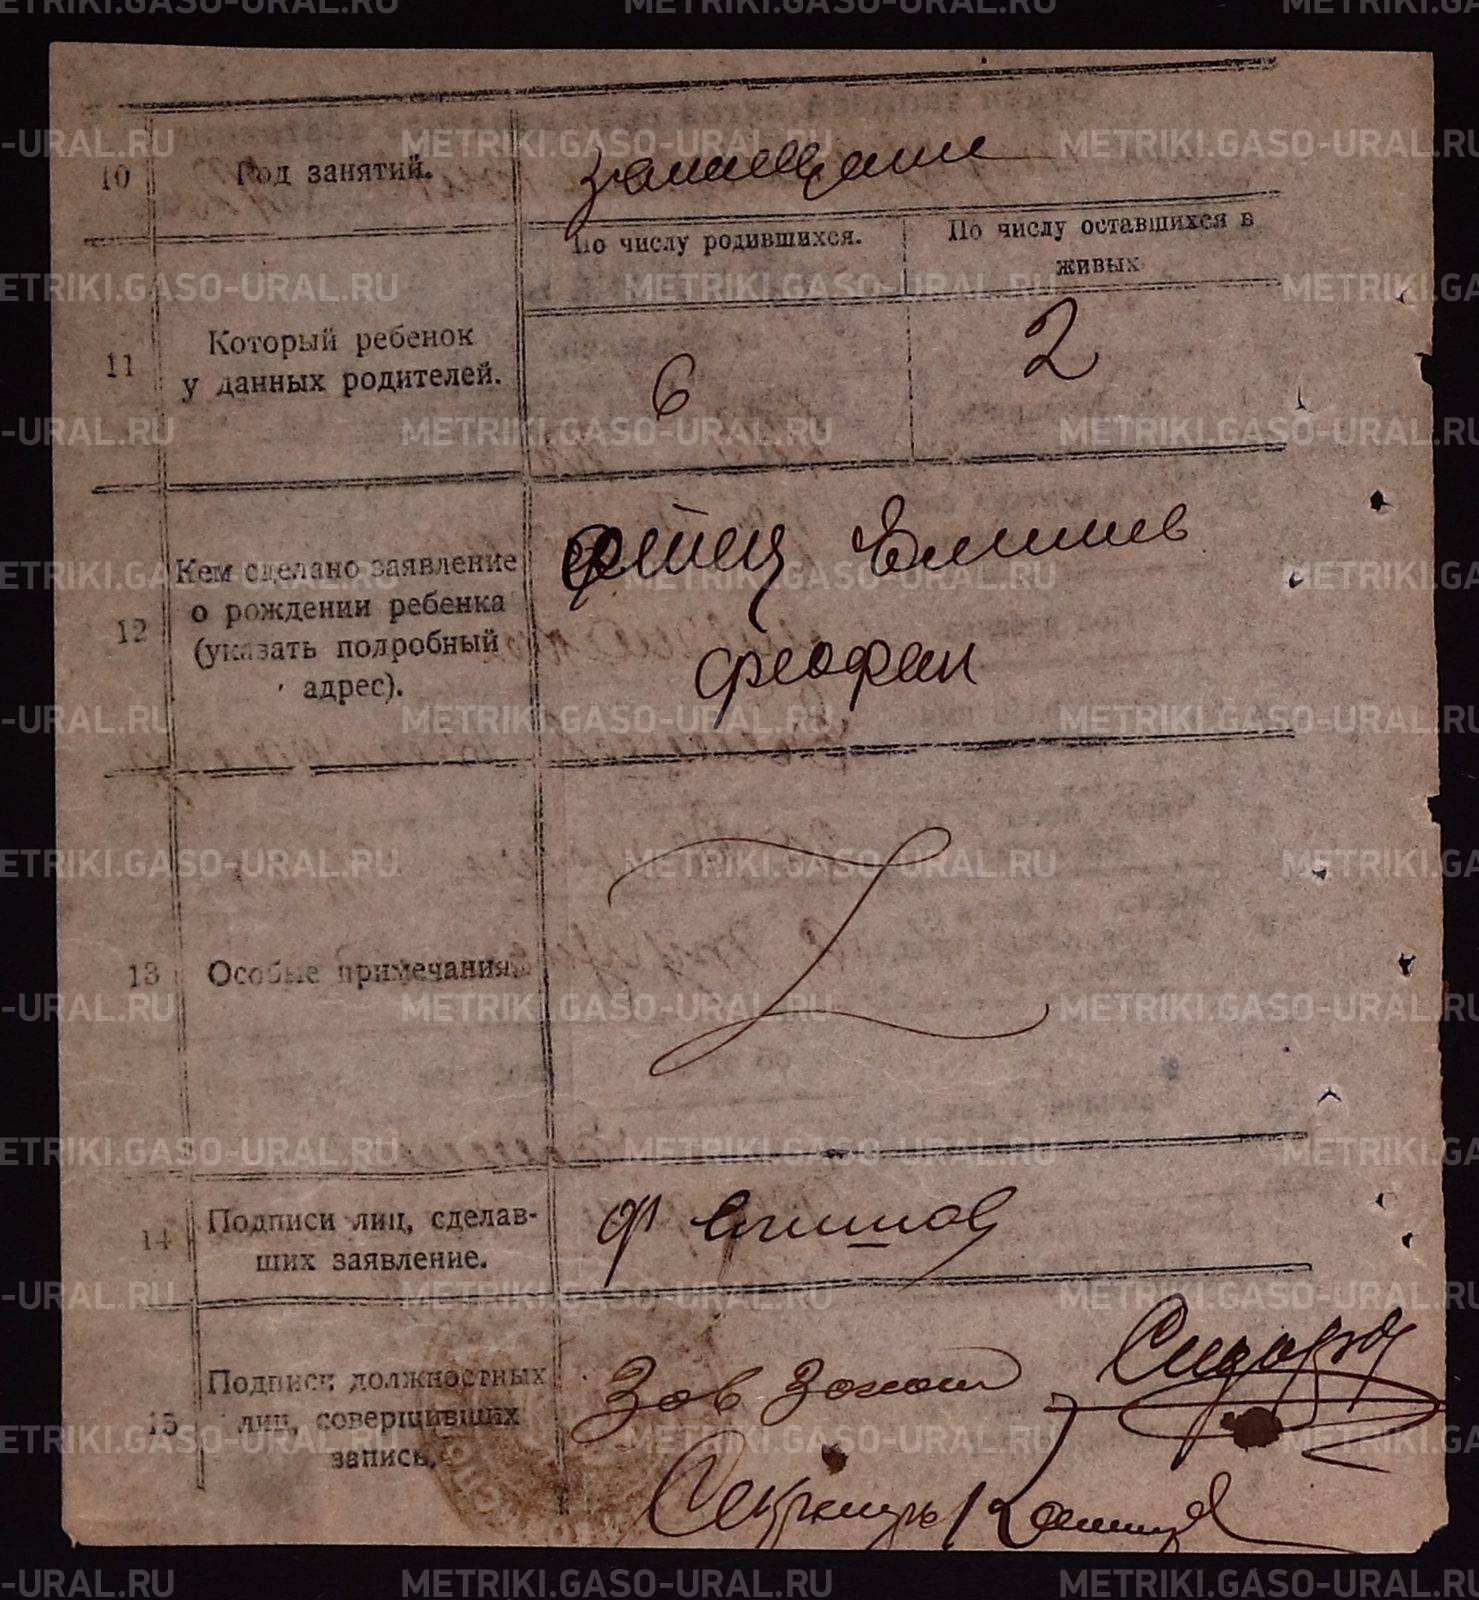 10 Род занятий.
11 Который ребенок
у данных родителей.
По числу родившихся.
По числу оставшихся в
живых
6
2
12 Кем сделано заявление
о рождении ребенка
(указать подробный
адрес).
Отец
Феофан
13 Особые примечания.
14 Подписи лиц, сделав-
ших заявление.
Ф
15 Подписи должностных
лиц, совершивших
запись.
Зав
Секретарь
METRIKI.GASO-URAL.RU